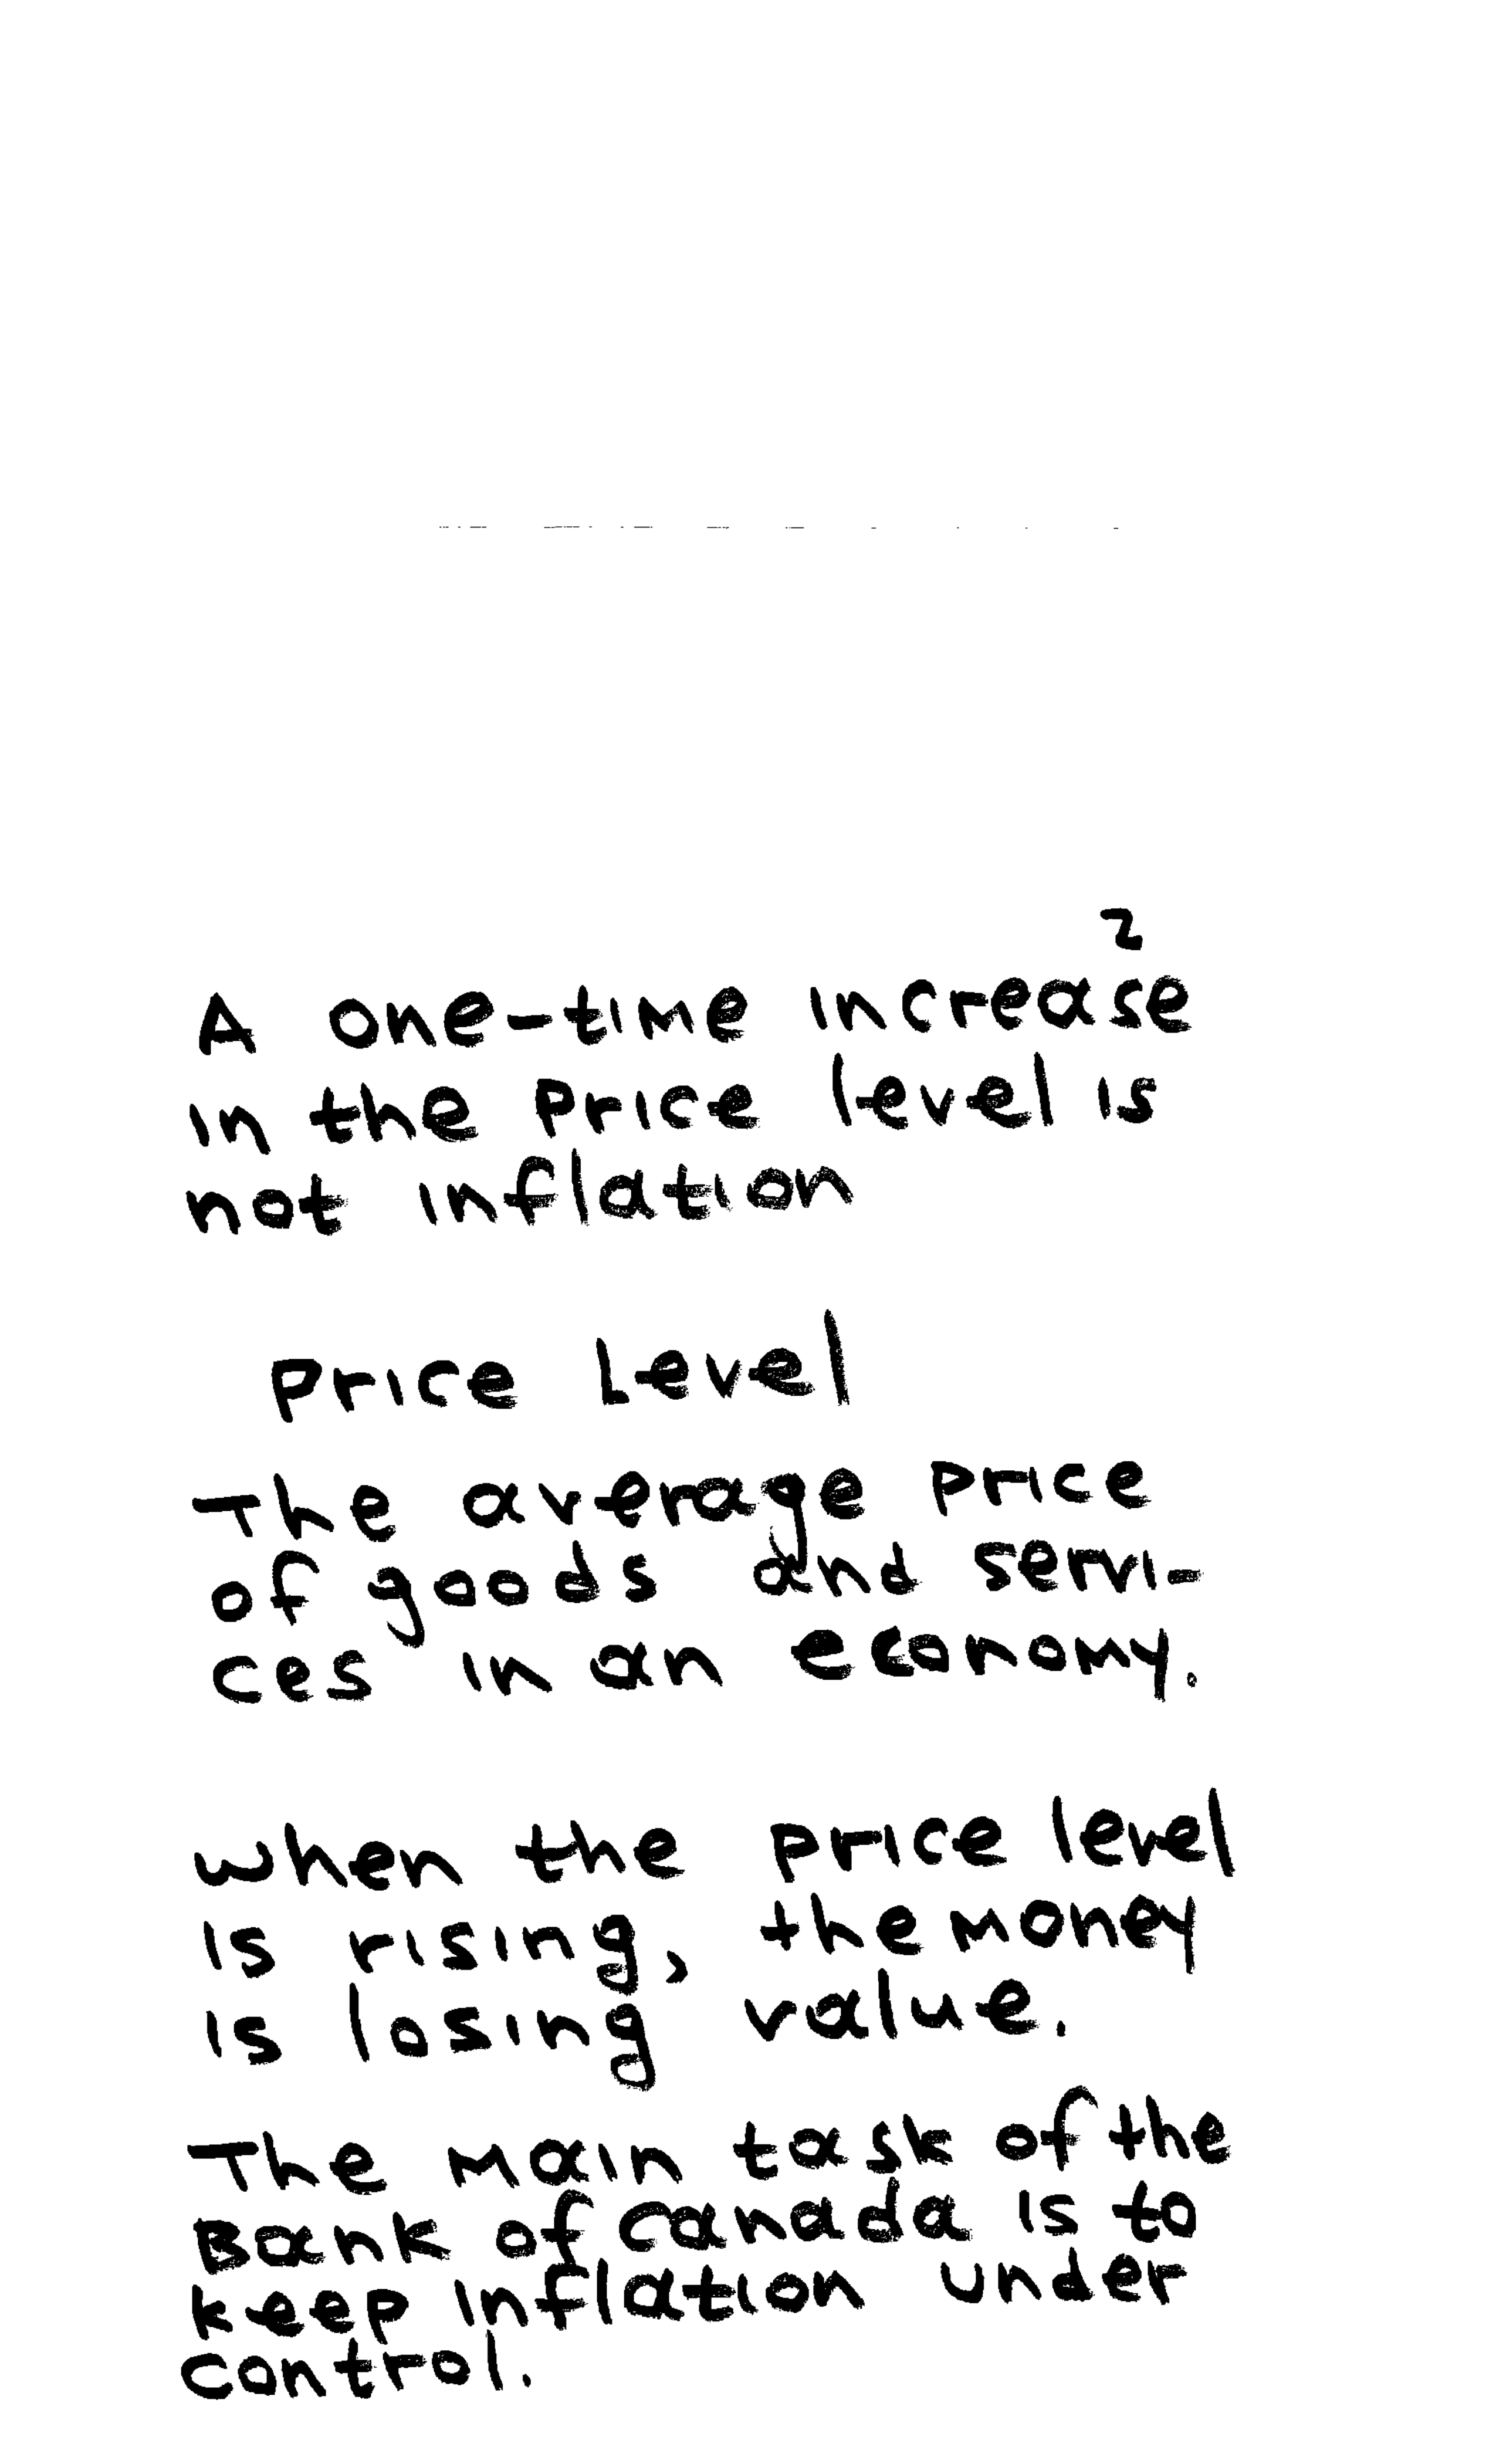 2
A one-time increase
in the price level is
not inflation
Price Level
The average price
of goods and servi-
ces in an economy.
when the price level
is rising, the money
is losing value.
The main task of the
Bank of Canada is to
keep inflation under
control.